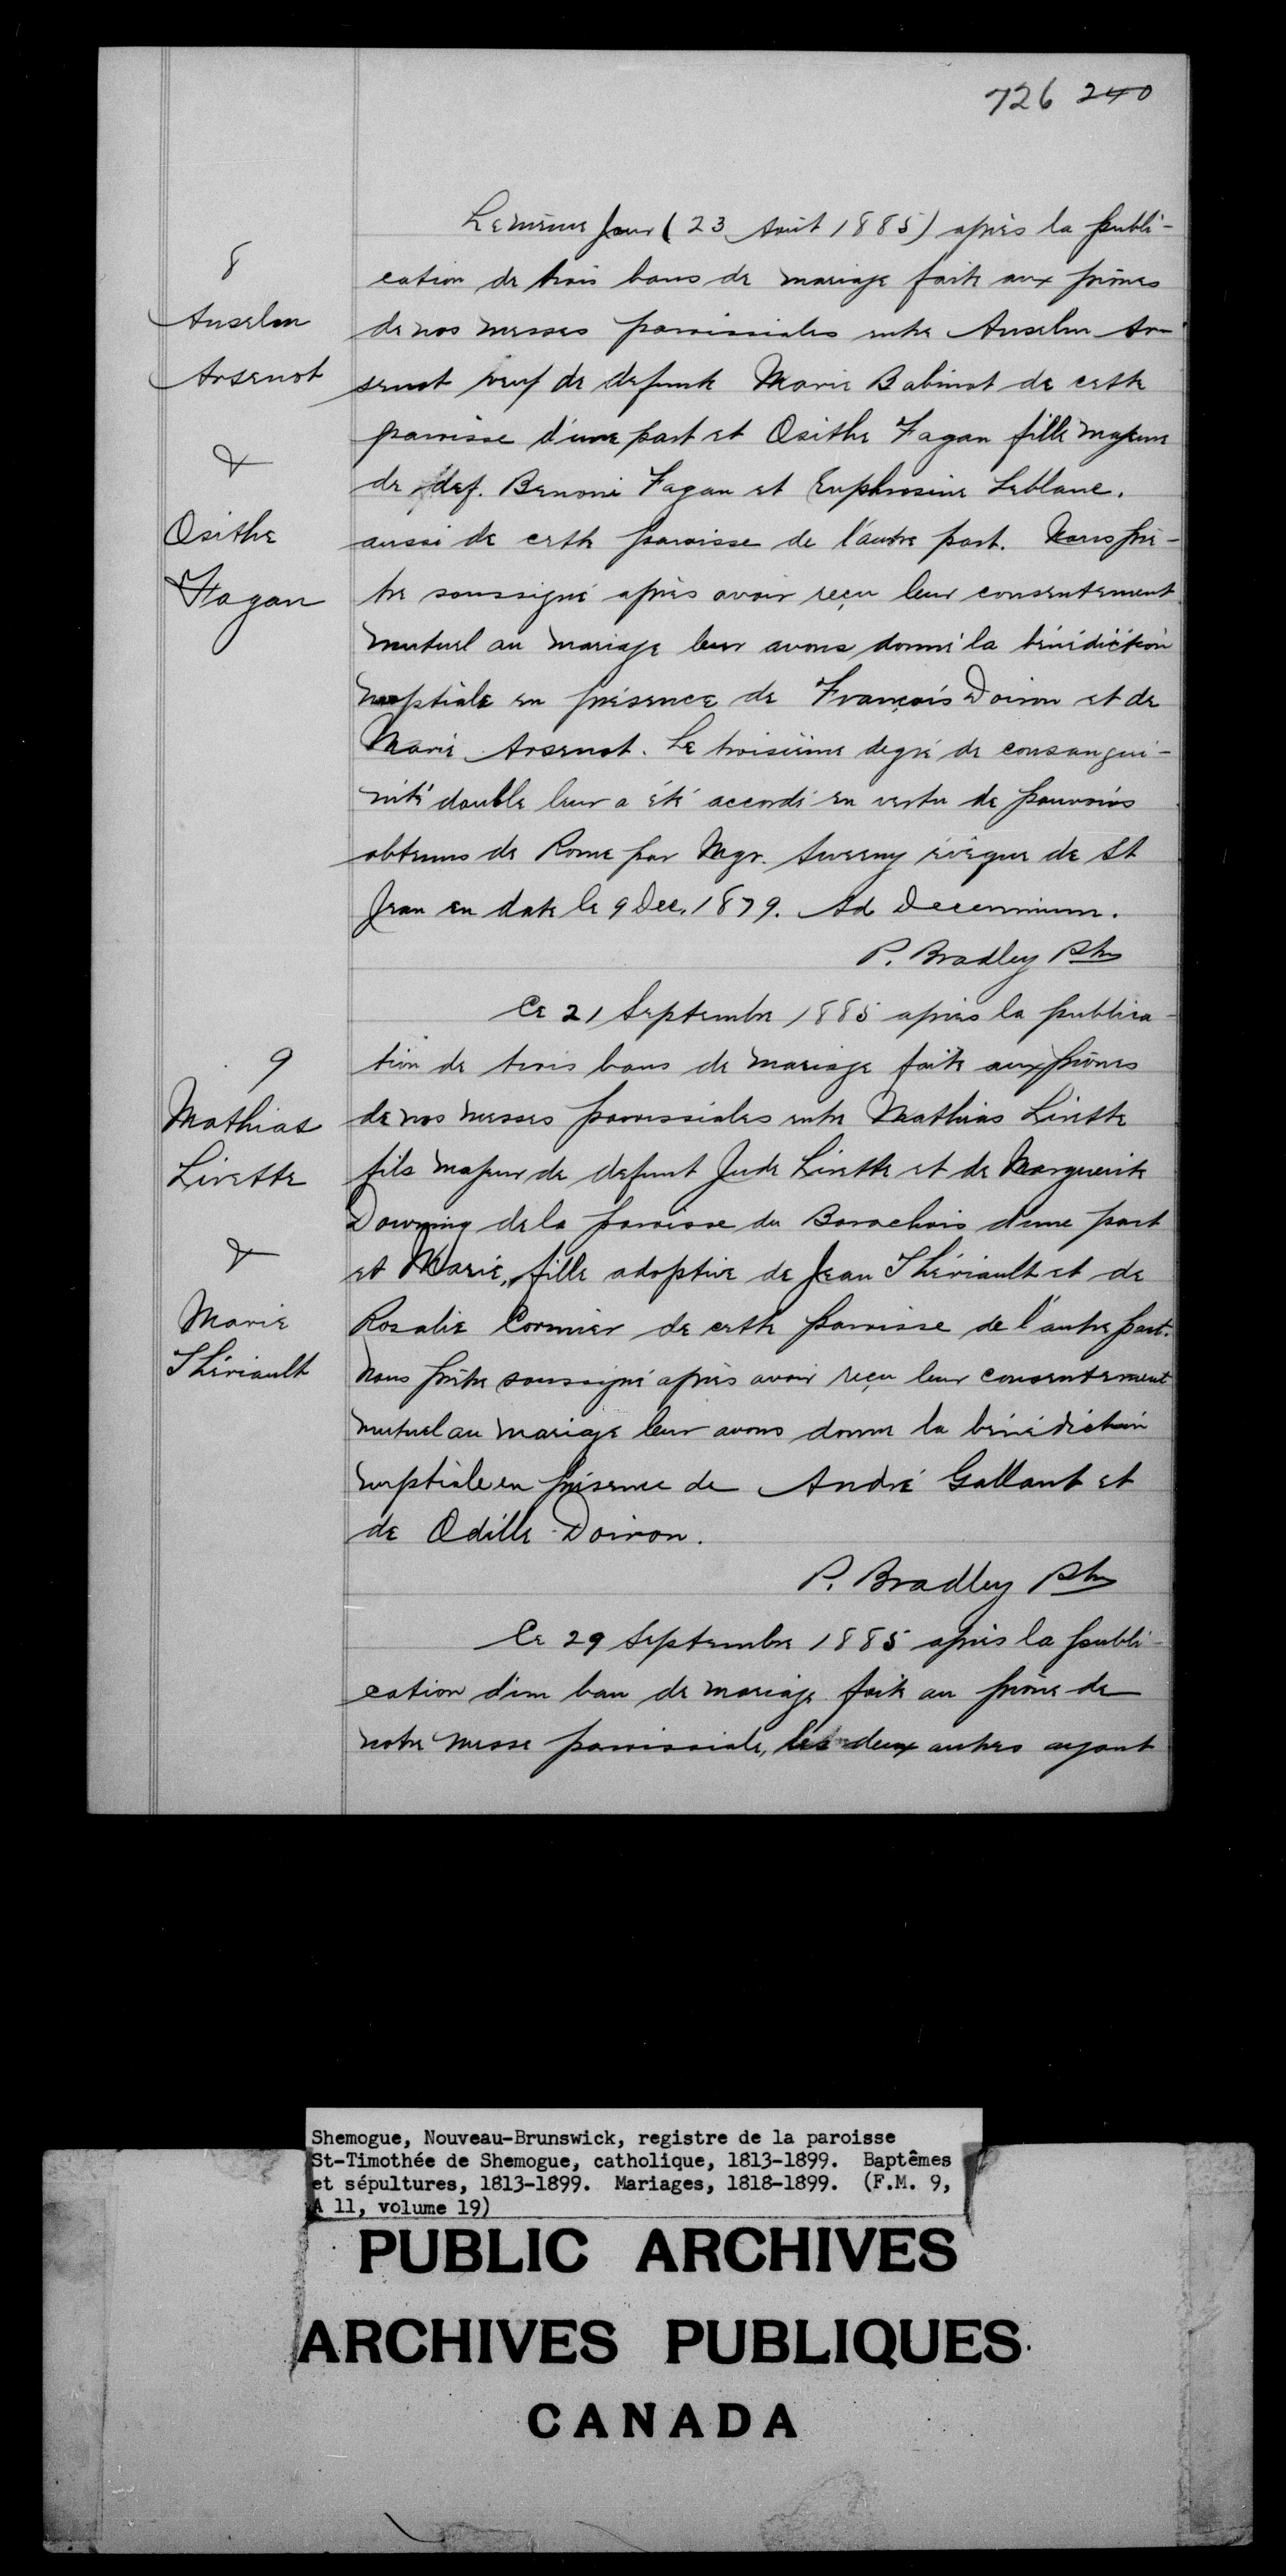 726 240
8
Anselm
Arsenot
&
Osithe
Fagan
Le même Jour (23 Août 1885) après la publi-
cation de trois bans de mariage faite aux prônes
de nos messes paroissiales entre Anselm Ar-
senot veuf de defunte Marie Babinot de cette
paroisse d'une part et Osithe Fagan fille majeure
de def. Benoni Fagan et Euphrosine Leblanc.
aussi de cette paroisse de l'autre part. Nous prê-
tre soussigné après avoir reçu leur consentement
mutuel au mariage leur avons donné la bénédiction
nuptiale en présence de François Doiron et de
Marie Arsenot. Le troisième degré de consangui-
nité double leur a été accordé en vertu de pouvoirs
obtenus de Rome par Mgr. Sweeny évêque de St
Jean en date le 9 Dec. 1879. Ad Decennium.
P. Bradley Ptre
9
Mathias
Livette
&
Marie
Thériault
Ce 21 Septembre 1885 après la publica-
tion de trois bans de mariage faite aux prônes
de nos messes paroissiales entre Mathias Livette
fils majeur de defunt Jude Livette et de Marguerite
Downing de la paroisse du Barachois d'une part
et Marie, fille adoptive de Jean Thériault et de
Rosalie Cormier de cette paroisse de l'autre part.
Nous prêtre soussigné après avoir reçu leur consentement
mutuel au mariage leur avons donné la bénédiction
nuptiale en présence de André Gallant et
de Odille Doiron.
P. Bradley Ptre
Ce 29 Septembre 1885 après la publi-
cation d'un ban de mariage faite au prône de
notre messe paroissiale, les deux autres ayant
Shemogue, Nouveau-Brunswick, registre de la paroisse
St-Timothée de Shemogue, catholique, 1813-1899. Baptêmes
et sépultures, 1813-1899. Mariages, 1818-1899. (F.M. 9,
A 11, volume 19)
PUBLIC ARCHIVES
ARCHIVES PUBLIQUES
CANADA